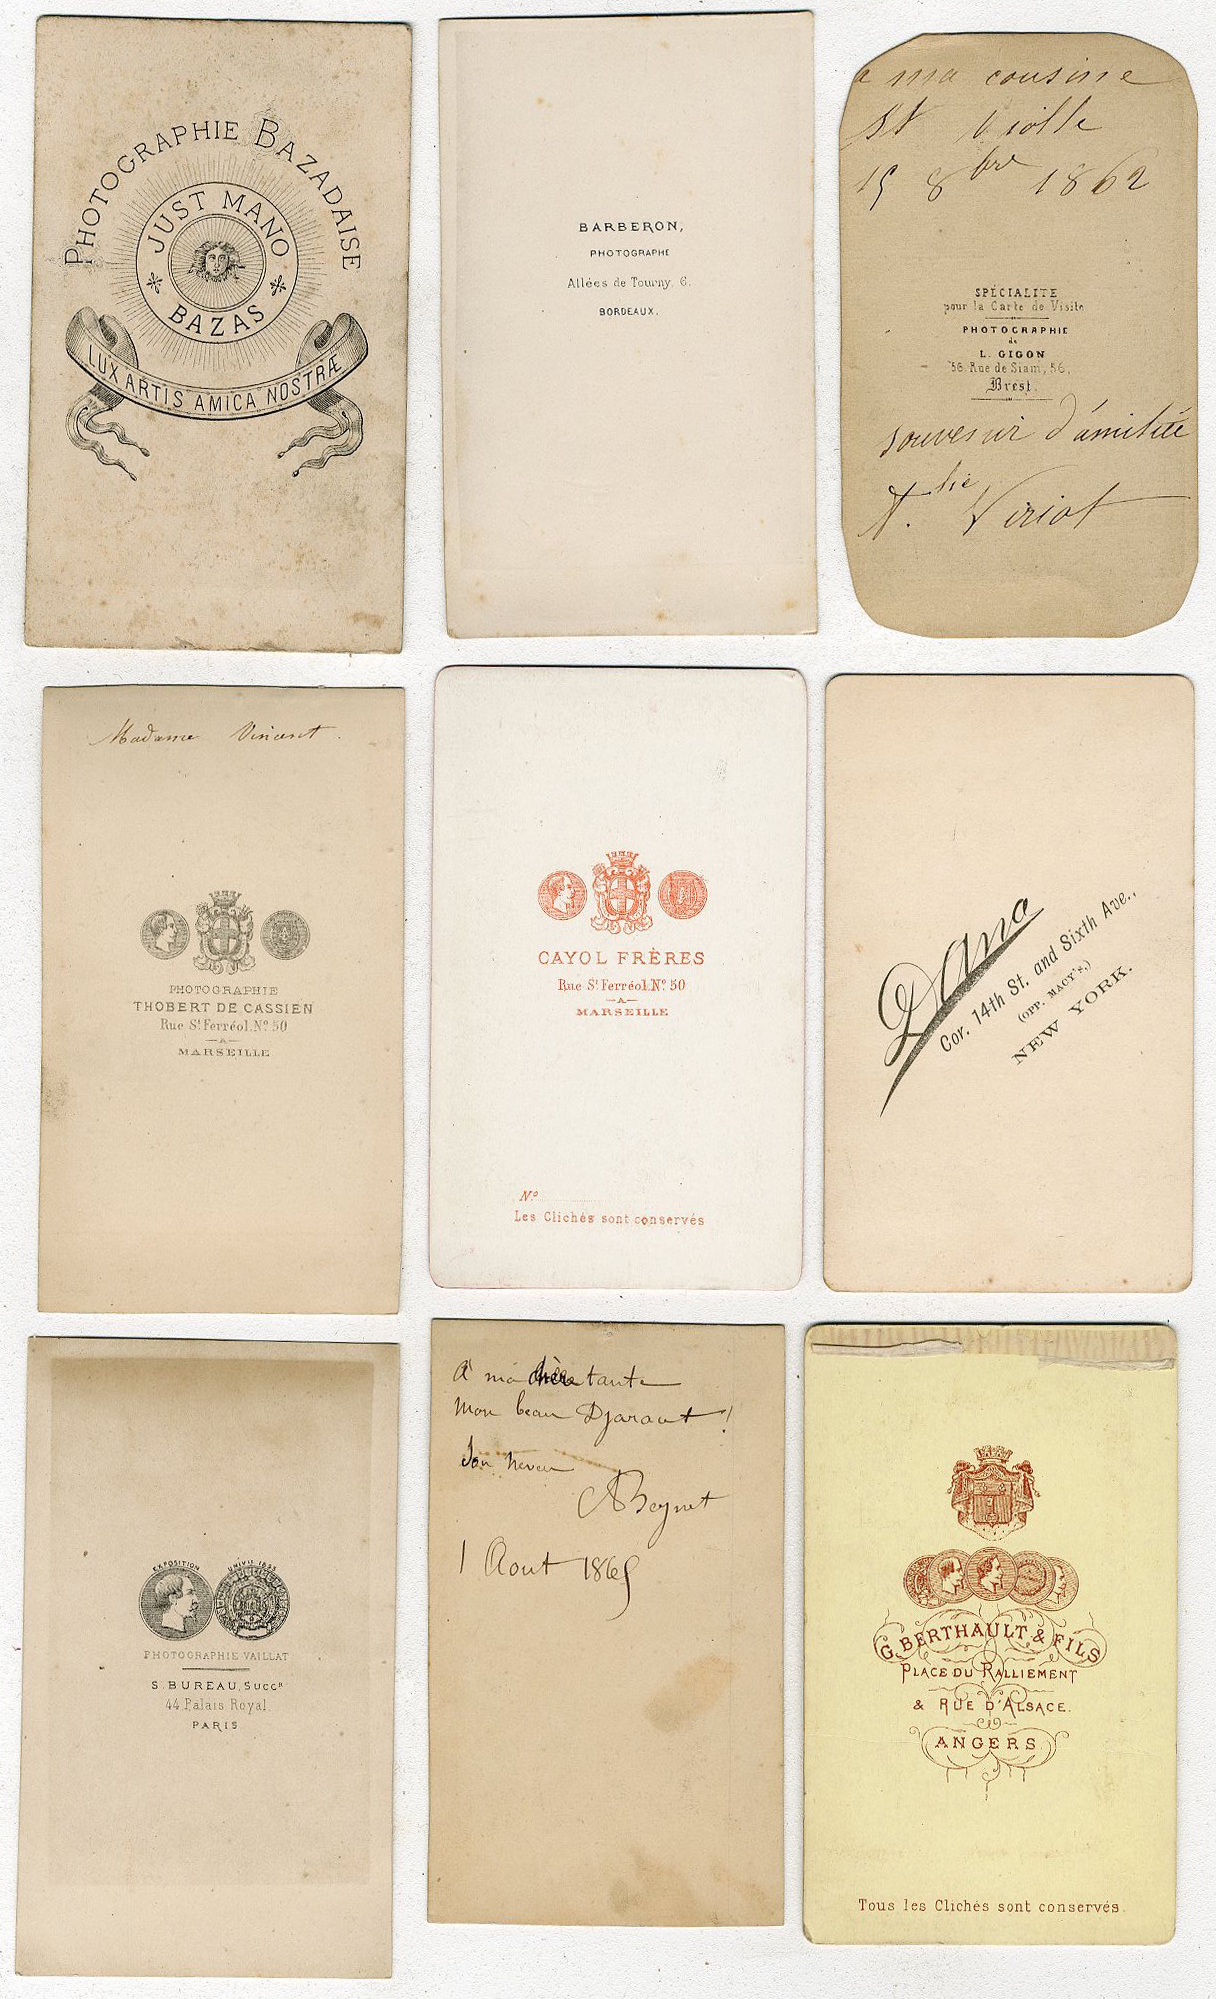 PHOTOGRAPHIE BAZADAISE
JUST MANO
BAZAS
LUX ARTIS AMICA NOSTRÆ
BARBERON,
PHOTOGRAPHE
Allées de Tourny, 6.
BORDEAUX.
a ma cousine
15 8bre 1862
SPÉCIALITE
pour la Carte de Visite
PHOTOGRAPHIE
de
L. GIGON
56 Rue de Siam, 56,
Brest.
souvenir d'amitié
Viriot
Madame Vincent.
PHOTOGRAPHIE
THOBERT DE CASSIEN
Rue St Ferréol. No 50
A
MARSEILLE
CAYOL FRÈRES
Rue St Ferréol. No 50
A
MARSEILLE
No
Les Clichés sont conservés
Dana
Cor. 14th St. and Sixth Ave.,
(OPP. MACY'S,)
NEW YORK.
EXPOSITION UNIVLE 1855
PHOTOGRAPHIE VAILLAT
S. BUREAU, SUCCR
44 Palais Royal
PARIS
A ma chère tante
Mon beau !
Son neveu
Beynet
1 Aout 1865
G. BERTHAULT & FILS
PLACE DU RALLIEMENT
& RUE D'ALSACE.
ANGERS
Tous les Clichés sont conservés.